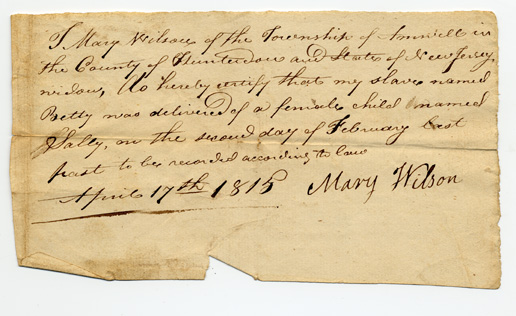 I Mary Wilson of the Township of Amwell in
the County of Hunterdon and State of New Jersey,
widow, Do hereby certify that my slave named
Betty was delivered of a female child named
Sally, on the second day of February last
past to be recorded according to law
April 17th 1815 Mary Wilson